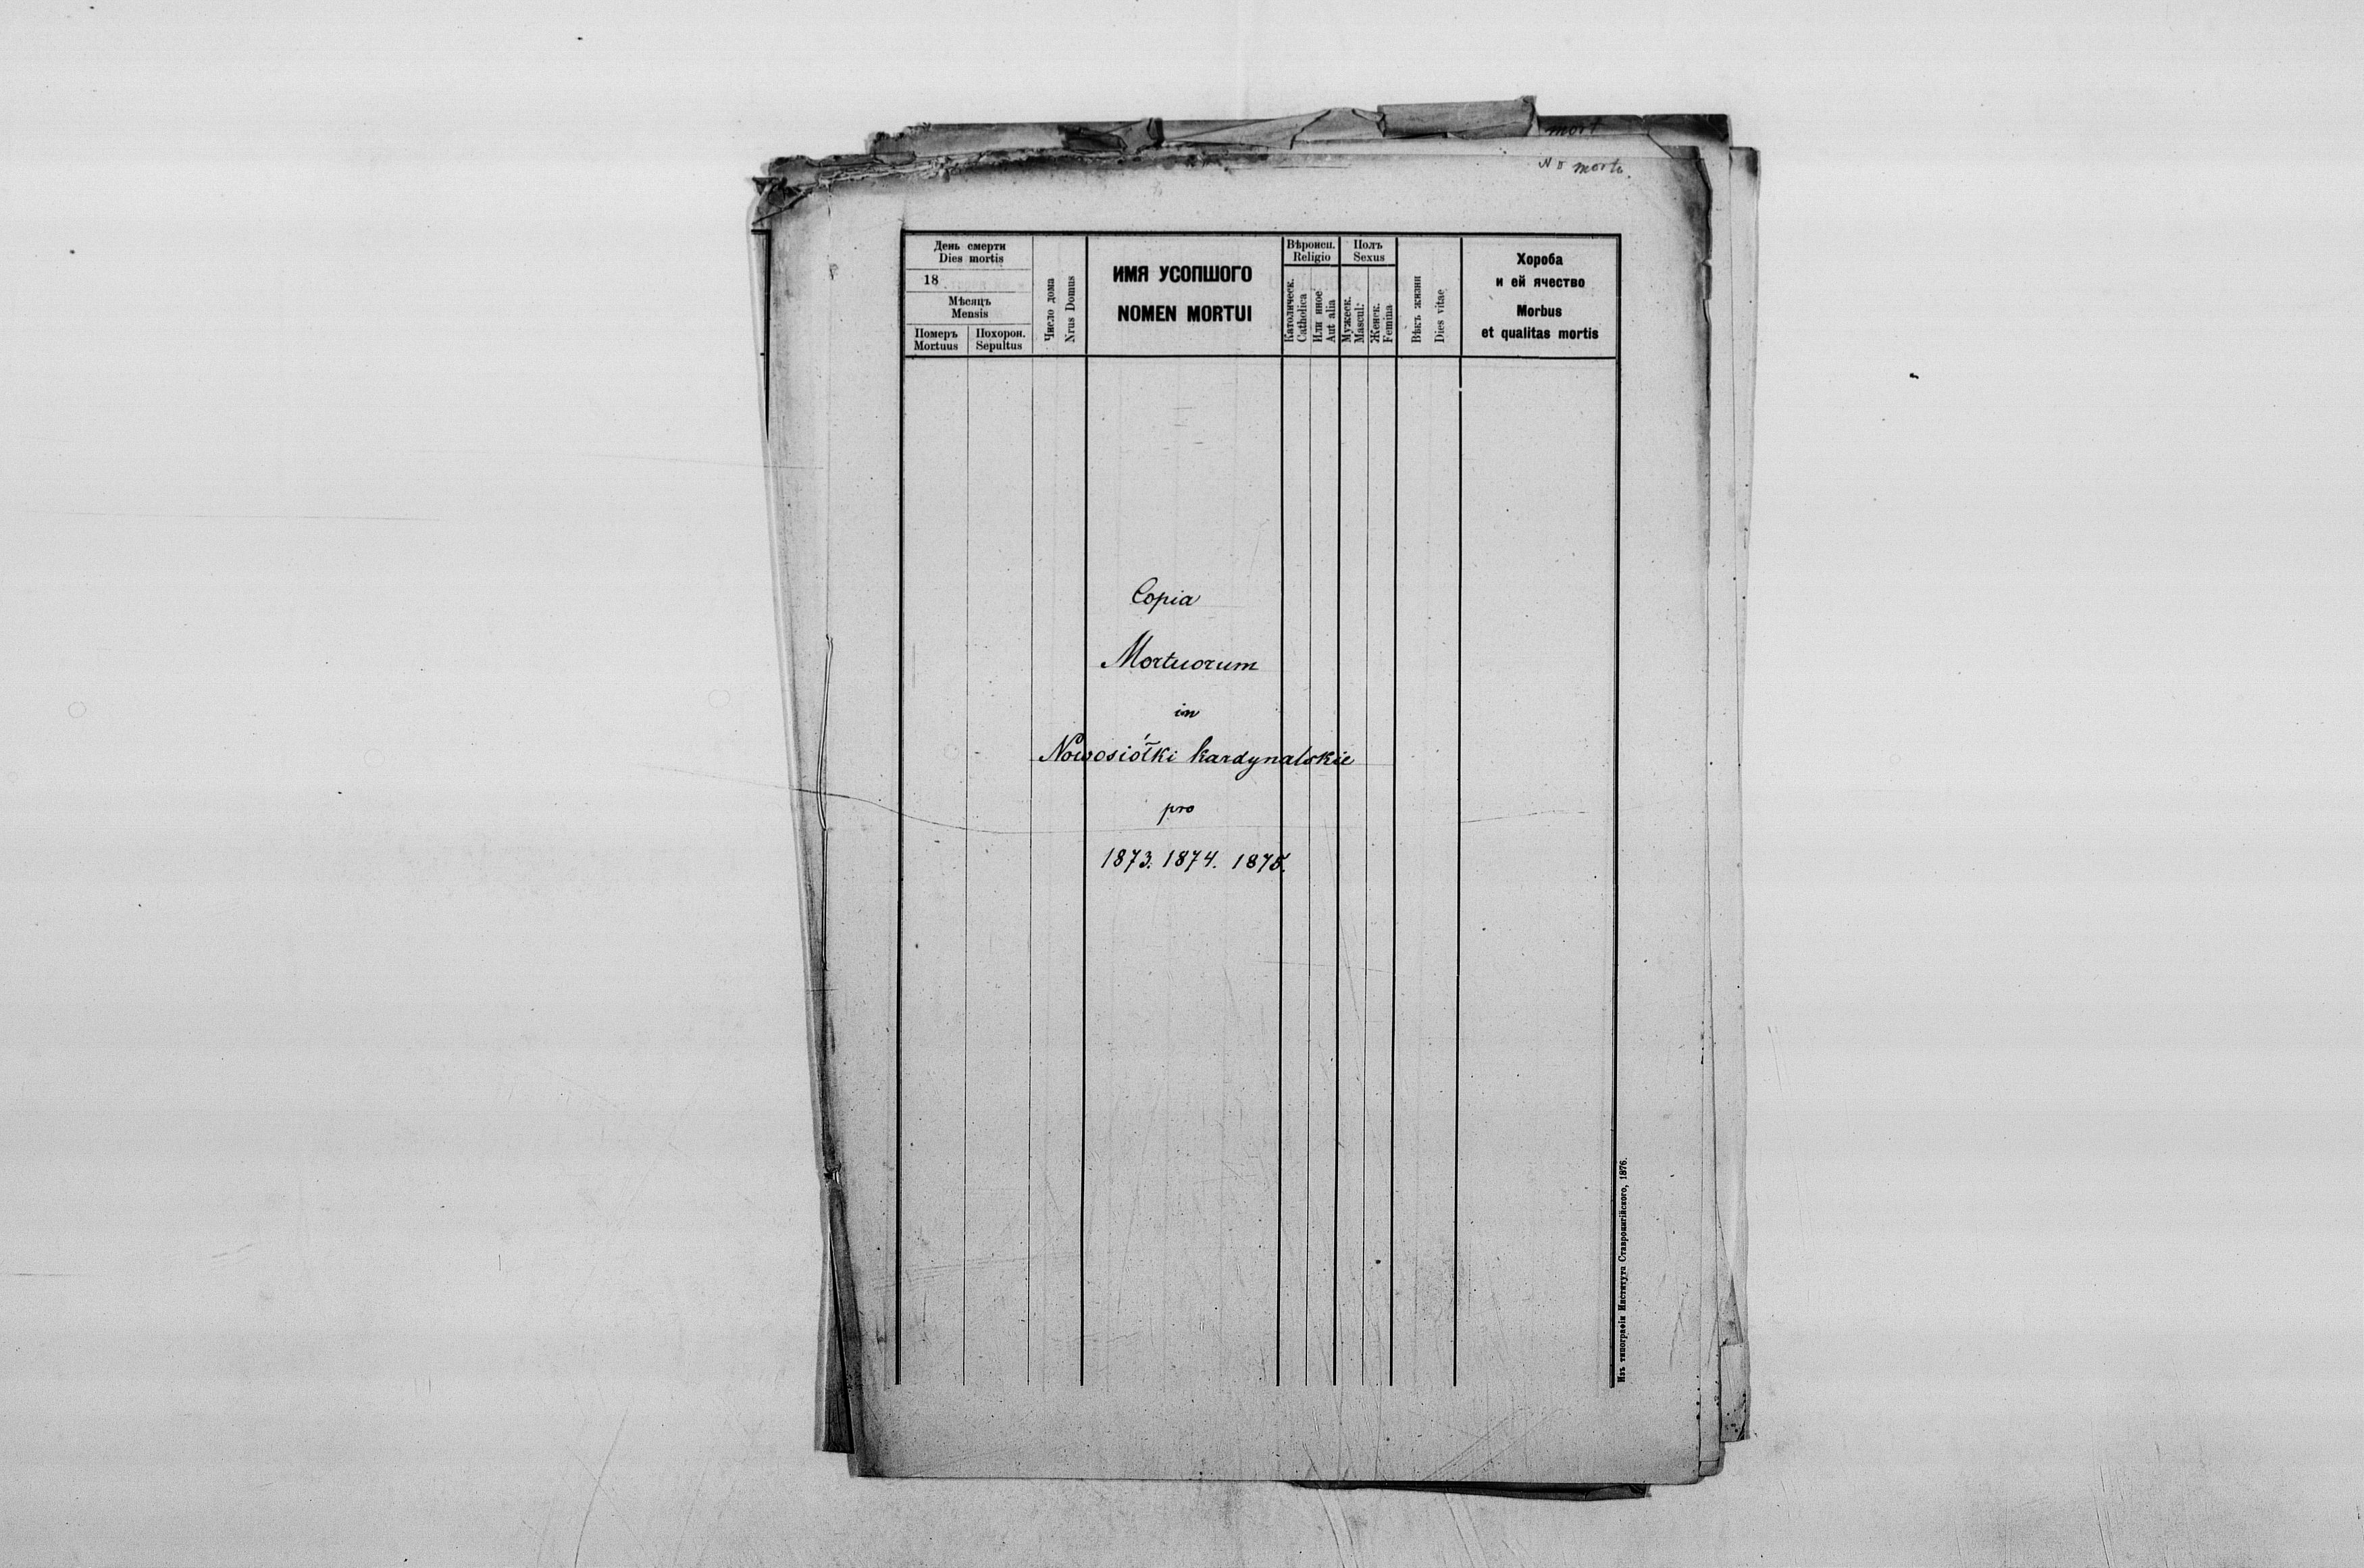 mort
N 8 mort.
День смерти
Dies mortis
18
Мѣсяцъ
Mensis
Померъ
Mortuus
Похорон.
Sepultus
Число дома
Nrus Domus
ИМЯ УСОПШОГО
NOMEN MORTUI
Вѣроисп.
Religio
Католическ.
Catholica
Или иное
Aut alia
Полъ
Sexus
Мужеск.
Mascul.
Женск.
Femina
Вѣкъ жизни
Dies vitae
Хороба
и ей ячество
Morbus
et qualitas mortis
Copia
Mortuorum
in
Nowosiółki kardynalskie
pro
1873. 1874. 1875.
Изъ типографіи Института Ставропигійского, 1876.